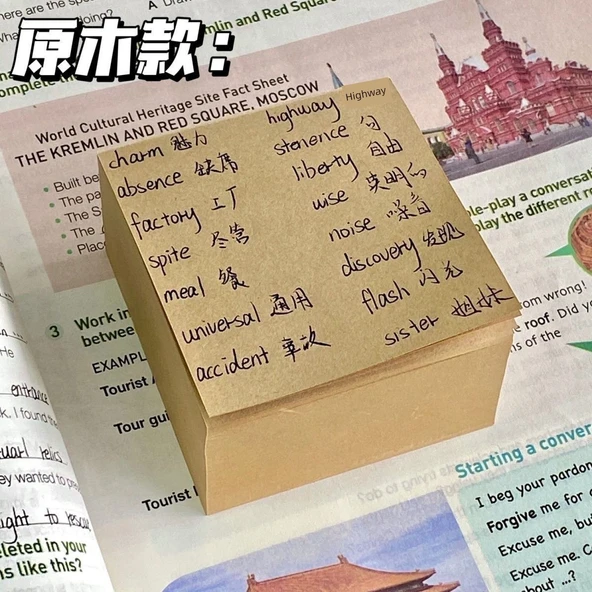 原木款：
charm 魅力
absence 缺席
factory 工厂
spite 尽管
meal 餐
universal 通用
accident 事故
Highway
highway
stenence 句
liberty 自由
wise 英明的
noise 噪音
discovery 发现
flash 闪光
sister 姐妹
World Cultural Heritage Site Fact Sheet
THE KREMLIN AND RED SQUARE, MOSCOW
Built be
The pa
The S
The
Place
mlin and Red Square
are the spe
A Dra
doing?
omplete the
le-play a conversat
play the different ro
om wrong!
roof. Did yo
s of the
3 Work in
between
EXAMPL
Tourist
Tour gui
Tourist
He
entrance
k. I found th
relics
ey wanted to pre
ght to rescue
eleted in your
ns like this?
Starting a conver
I beg your pardon
Forgive me for
Excuse me, bu
Excuse me. C
about ...?